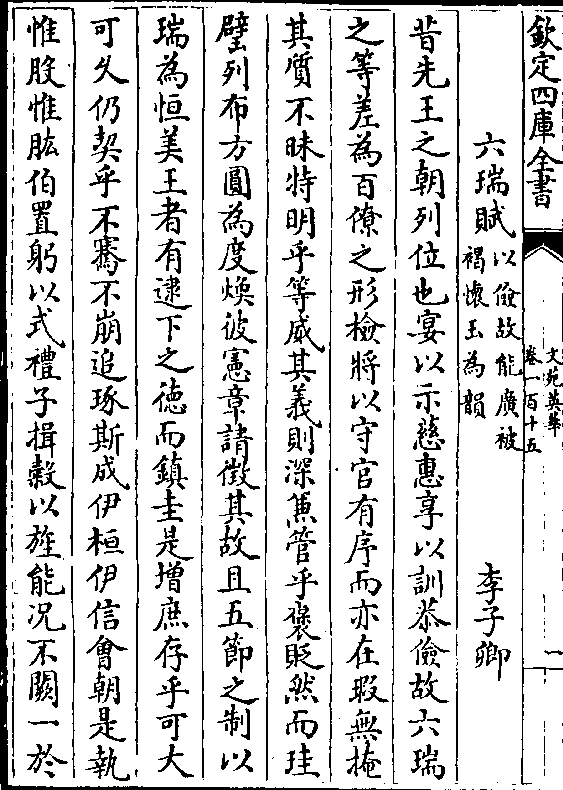 欽定四庫全書
文苑英華
卷一百十五
一
六瑞賦
以儉故能廣被
褐懷玉為韻
李子卿
昔先王之朝列位也宴以示慈惠享以訓恭儉故六瑞
之等差為百僚之形檢將以守官有序而亦在瑕無掩
其質不昧特明乎等威其義則深兼管乎褒貶然而珪
璧列布方圓為度煥彼憲章請徵其故且五節之制以
瑞為恒美王者有逮下之徳而鎮圭是增庶存乎可大
可久仍契乎不騫不崩追琢斯成伊桓伊信會朝是執
惟股惟肱伯置躬以式禮子揖榖以旌能况不闕一於